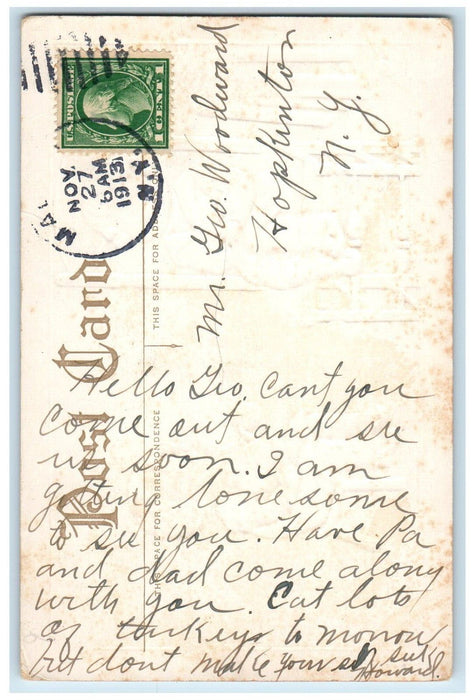 U.S. POSTAGE
1 CENT 1
NOV
27
6 AM
1913
N.Y.
Post Card
THIS SPACE FOR CORRESPONDENCE
THIS SPACE FOR AD
Mr. Geo. Woodward
Hopkinton
N. Y.
Hello Geo, cant you
come out and see
us soon. I am
getting lonesome
to see you. Have Pa
and dad come along
with you. Eat lots
of turkeys to morrow
but dont make your self sick
Howard.